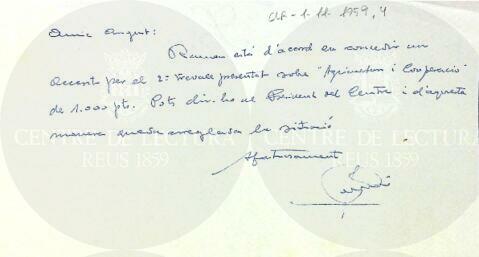 CLR-1-11-1959, 4
Amic August:
Ramon està d'acord en concedir un
accesit per el 2ⁿ treball presentat sobre "Agricultura i Cooperació"
de 1.000 pts. Pots dir-ho al President del Centre i d'aquesta
manera queda arreglada la situació
Afectuosament
CENTRE DE LECTURA
REUS 1859
CENTRE DE LECTURA
REUS 1859